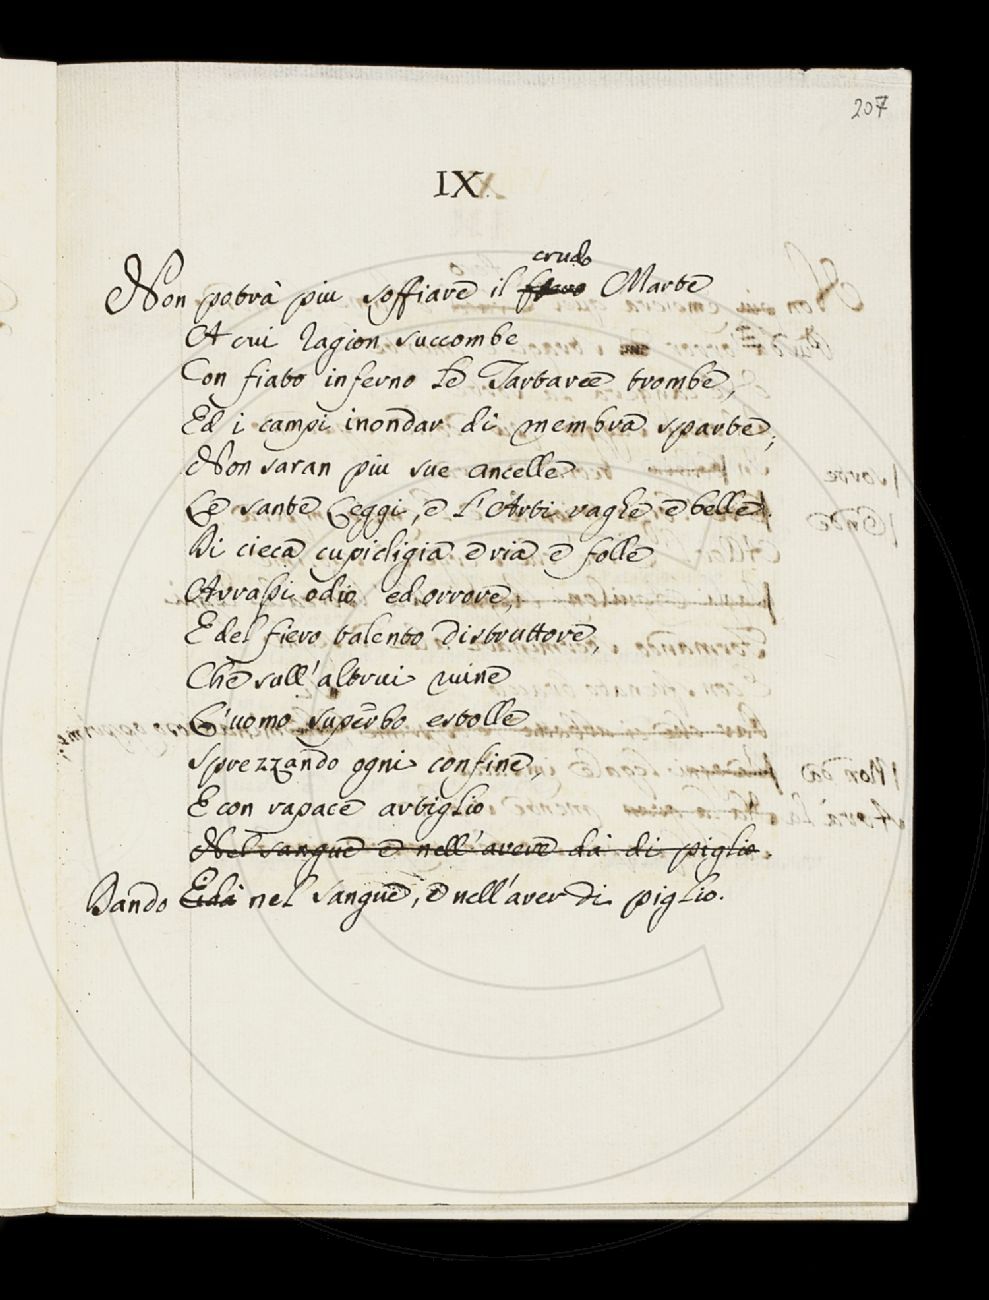 207
IX.
crudo
Non potrà piu soffiare il fiero Marte
A cui ragion succombe
Con fiato inferno le Tartaree trombe,
Ed i campi inondar di membra sparte;
Non saran piu sue ancelle
Le sante Leggi, e l'Arti vaghe e belle.
Di cieca cupidigia e ria e folle
Avrassi odio ed orrore,
E del fiero talento distruttore,
Che sull'altrui ruine
L'uomo superbo estolle
Sprezzando ogni confine,
E con rapace artiglio
Nel sangue e nell'avere dà di piglio.
Dando E dà nel sangue, e nell'aver di piglio.